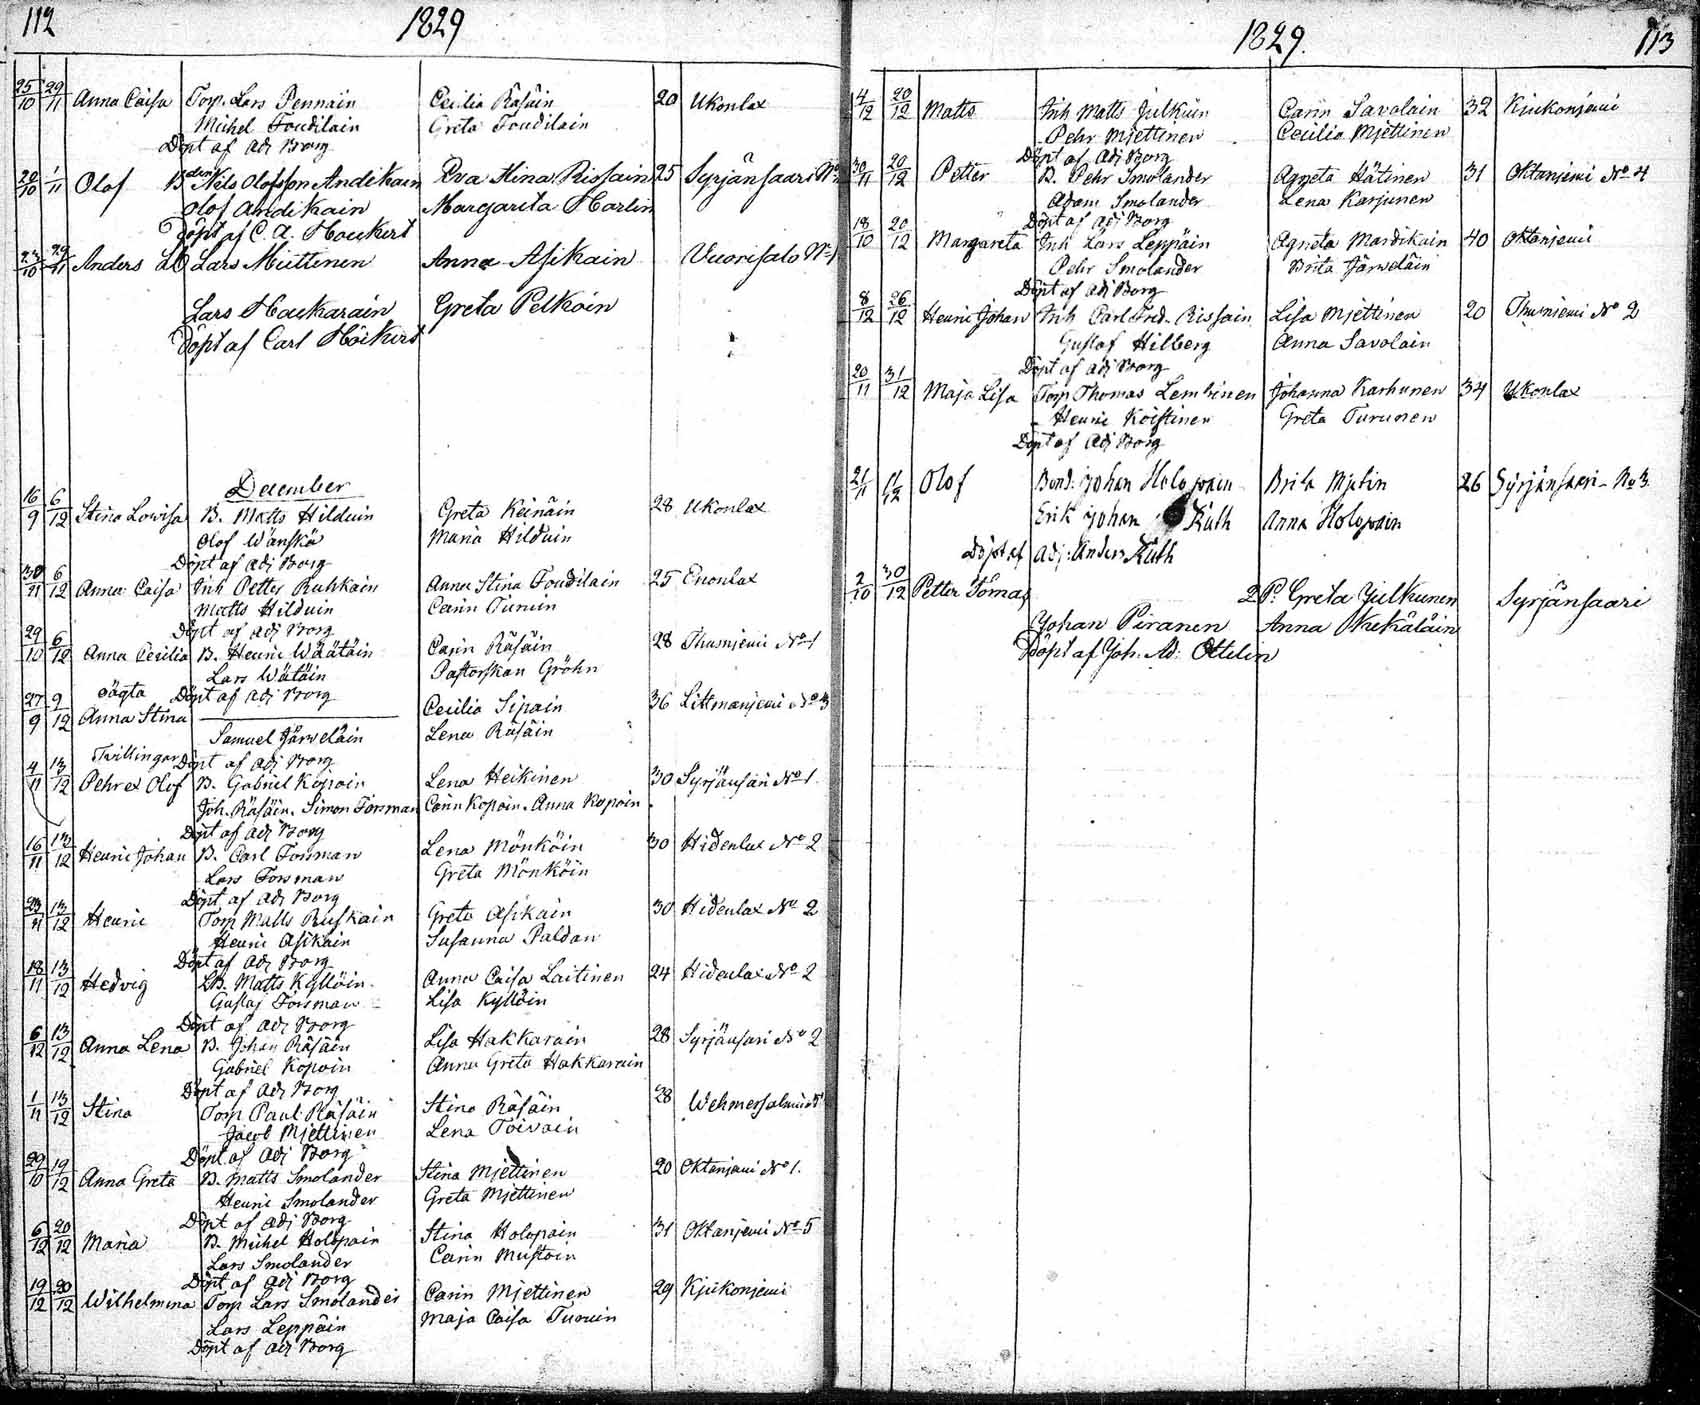 112 1829
25/10 29/11 Anna Caisa Torp. Lars Pennain Cecilia Räsäin 20 Ukonlax
Michel Toudilain Greta Toudilain
Döpt af Adj Borg
20/10 1/11 Olof Bden Nils Olofsson Andikain Eva Stina Rissain 25 Syrjänsaari
Olof Andikain Margareta Harlin
Döpt af C. A. Houkert
23/10 29/11 Anders Lars Miettinen Anna Asikain Vuorisalo No 1
Lars Haukarain Greta Pelkoin
Döpt af Carl Höikert
December
16/9 6/12 Stina Lowisa B. Matts Hilduin Greta Keinäin 28 Ukonlax
Olof Wänskä Maria Hilduin
Döpt af Adj Borg
30/11 6/12 Anna Caisa Inh Petter Ruhkain Anna Stina Toudilain 25 Enonlax
Matts Hilduin Carin Turuin
Döpt af Adj Borg
29/10 6/12 Anna Cecilia B. Henric Wäätäin Carin Räsäin 28 Thusnjemi No 1
Lars Wätäin Pastorskan Gröhn
oägta Döpt af Adj Borg
27/9 9/12 Anna Stina Cecilia Sipain 36 Littmanjemi No 3
Samuel Järweläin Lena Räsäin
Twillingar Döpt af Adj Borg
4/11 13/12 Pehr et Olof B. Gabriel Kopoin Lena Heikinen 30 Syrjänsari No 1
Joh. Räsäin. Simon Forsman Carin Kopoin. Anna Kopoin
Döpt af Adj Borg
16/11 13/12 Henric Johan B. Carl Forsman Lena Mönköin 30 Hidenlax No 2
Lars Forsman Greta Mönköin
Döpt af Adj Borg
23/11 13/12 Henric Torp Matts Ruskain Greta Asikain 30 Hidenlax No 2
Henric Asikain Susanna Paldan
Döpt af Adj Borg
18/11 13/12 Hedvig LB. Matts Kyllöin Anna Caisa Laitinen 24 Hidenlax No 2
Gustaf Forsman Lisa Kyllöin
Döpt af Adj Borg
6/12 13/12 Anna Lena B. Johan Räsäin Lisa Hakkarain 28 Syrjänsari No 2
Gabriel Kopoin Anna Greta Hakkarain
Döpt af Adj Borg
1/11 13/12 Stina Torp Paul Räsäin Stina Räsäin 28 Wehmersalmi
Jacob Mjettinen Lena Toivain
Döpt af Adj Borg
29/10 19/12 Anna Greta B. Matts Smolander Stina Mjettinen 20 Oktanjemi No 1.
Henric Smolander Greta Mjettinen
Döpt af Adj Borg
6/12 20/12 Maria B. Michel Holopain Stina Holopain 31 Oktanjemi No 5
Lars Smolander Carin Mustoin
Döpt af Adj Borg
19/12 20/12 Wilhelmina Torp Lars Smolander Carin Mjettinen 29 Kjukonjemi
Lars Leppäin Maja Caisa Turuin
Döpt af Adj Borg
1829. 113
4/12 20/12 Matts Inh Matts Julkuin Carin Savolain 32 Kjukonjemi
Pehr Mjettinen Cecilia Mjettinen
Döpt af Adj Borg
30/11 20/12 Petter B. Pehr Smolander Agneta Hätinen 31 Oktanjemi No 4
Adam Smolander Lena Karjunen
Döpt af Adj Borg
18/10 20/12 Margareta Inh Lars Leppäin Agneta Mardikain 40 Oktanjemi
Pehr Smolander Brita Järweläin
Döpt af Adj Borg
8/12 26/12 Henric Johan Inh Carl Fred. Rissain Lisa Mjettinen 20 Thusnjemi No 2
Gustaf Hilberg Anna Savolain
Döpt af Adj Borg
20/11 31/12 Maja Lisa Torp Thomas Lembinen Johanna Karhunen 34 Ukonlax
Henric Koistinen Greta Turunen
Döpt af Adj Borg
21/11 Olof Bond: Johan Holopain Brita Mjetin 26 Syrjänsaari No 3.
Erik Johan Ruth Anna Holopain
Döpt af Adj: Anders Ruth
2/10 30/12 Petter Tomas 2 P. Greta Julkunen Syrjänsaari
Johan Piranen Anna Kekäläin
Döpt af Joh. Ad: Ottelin